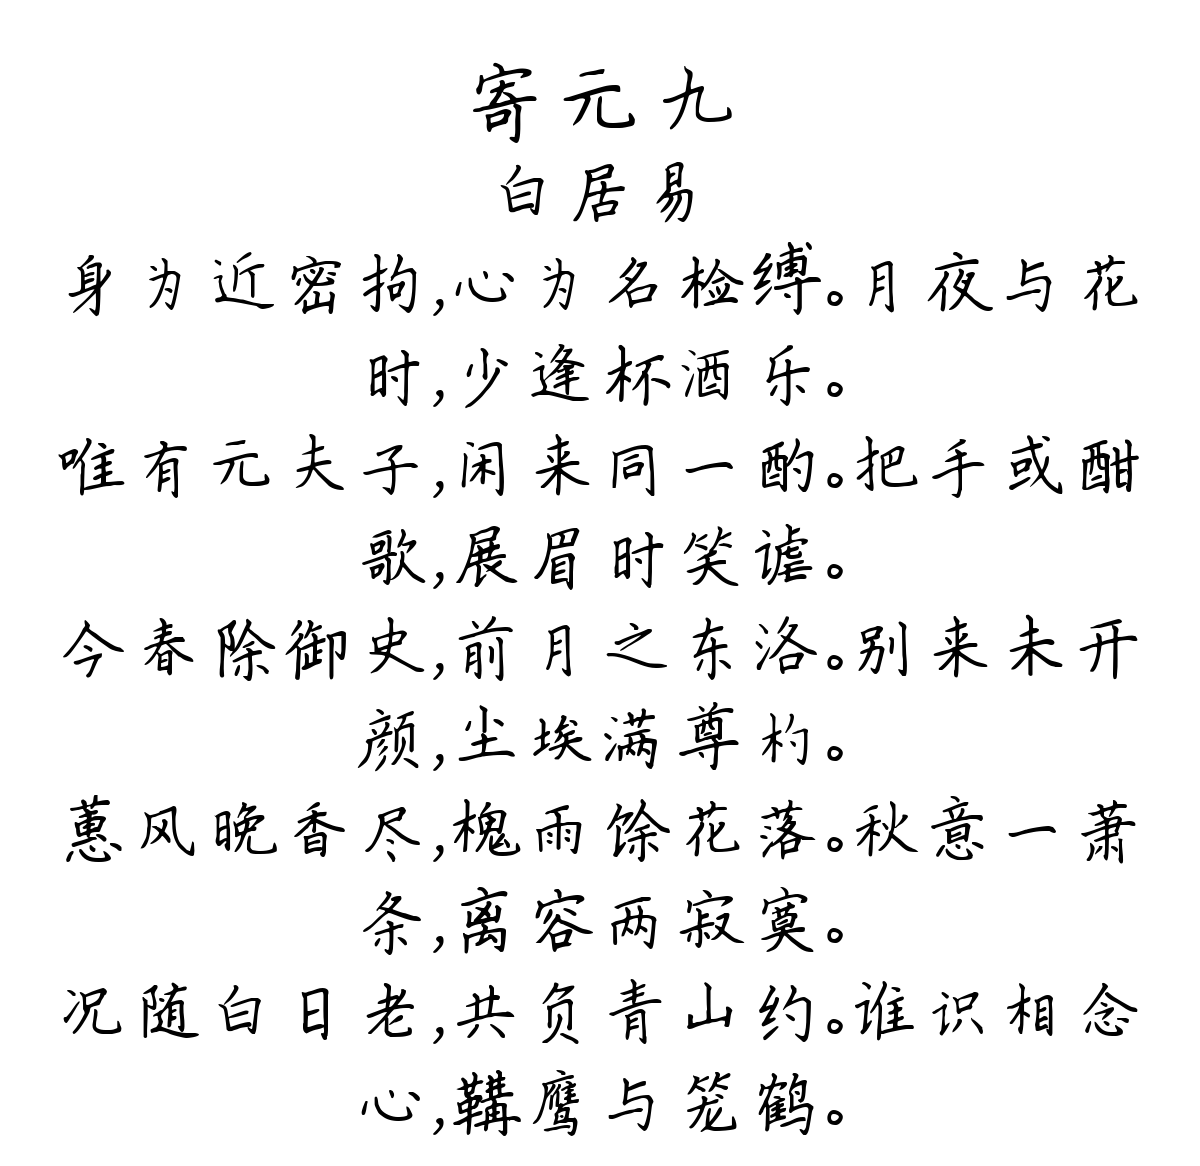 寄元九
白居易
身为近密拘,心为名检缚。月夜与花
时,少逢杯酒乐。
唯有元夫子,闲来同一酌。把手或酣
歌,展眉时笑谑。
今春除御史,前月之东洛。别来未开
颜,尘埃满尊杓。
蕙风晚香尽,槐雨馀花落。秋意一萧
条,离容两寂寞。
况随白日老,共负青山约。谁识相念
心,鞲鹰与笼鹤。